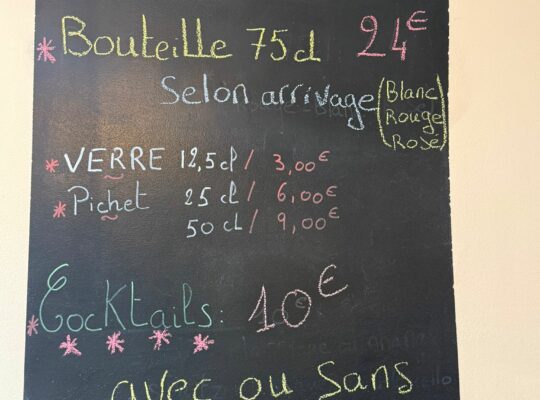 * Bouteille 75cl 24€
Selon arrivage (Blanc
Rouge
Rosé)
* VERRE 12,5cl / 3,00€
* Pichet 25 cl / 6,00€
50 cl / 9,00€
* Cocktails: 10€
* * * *
avec ou Sans